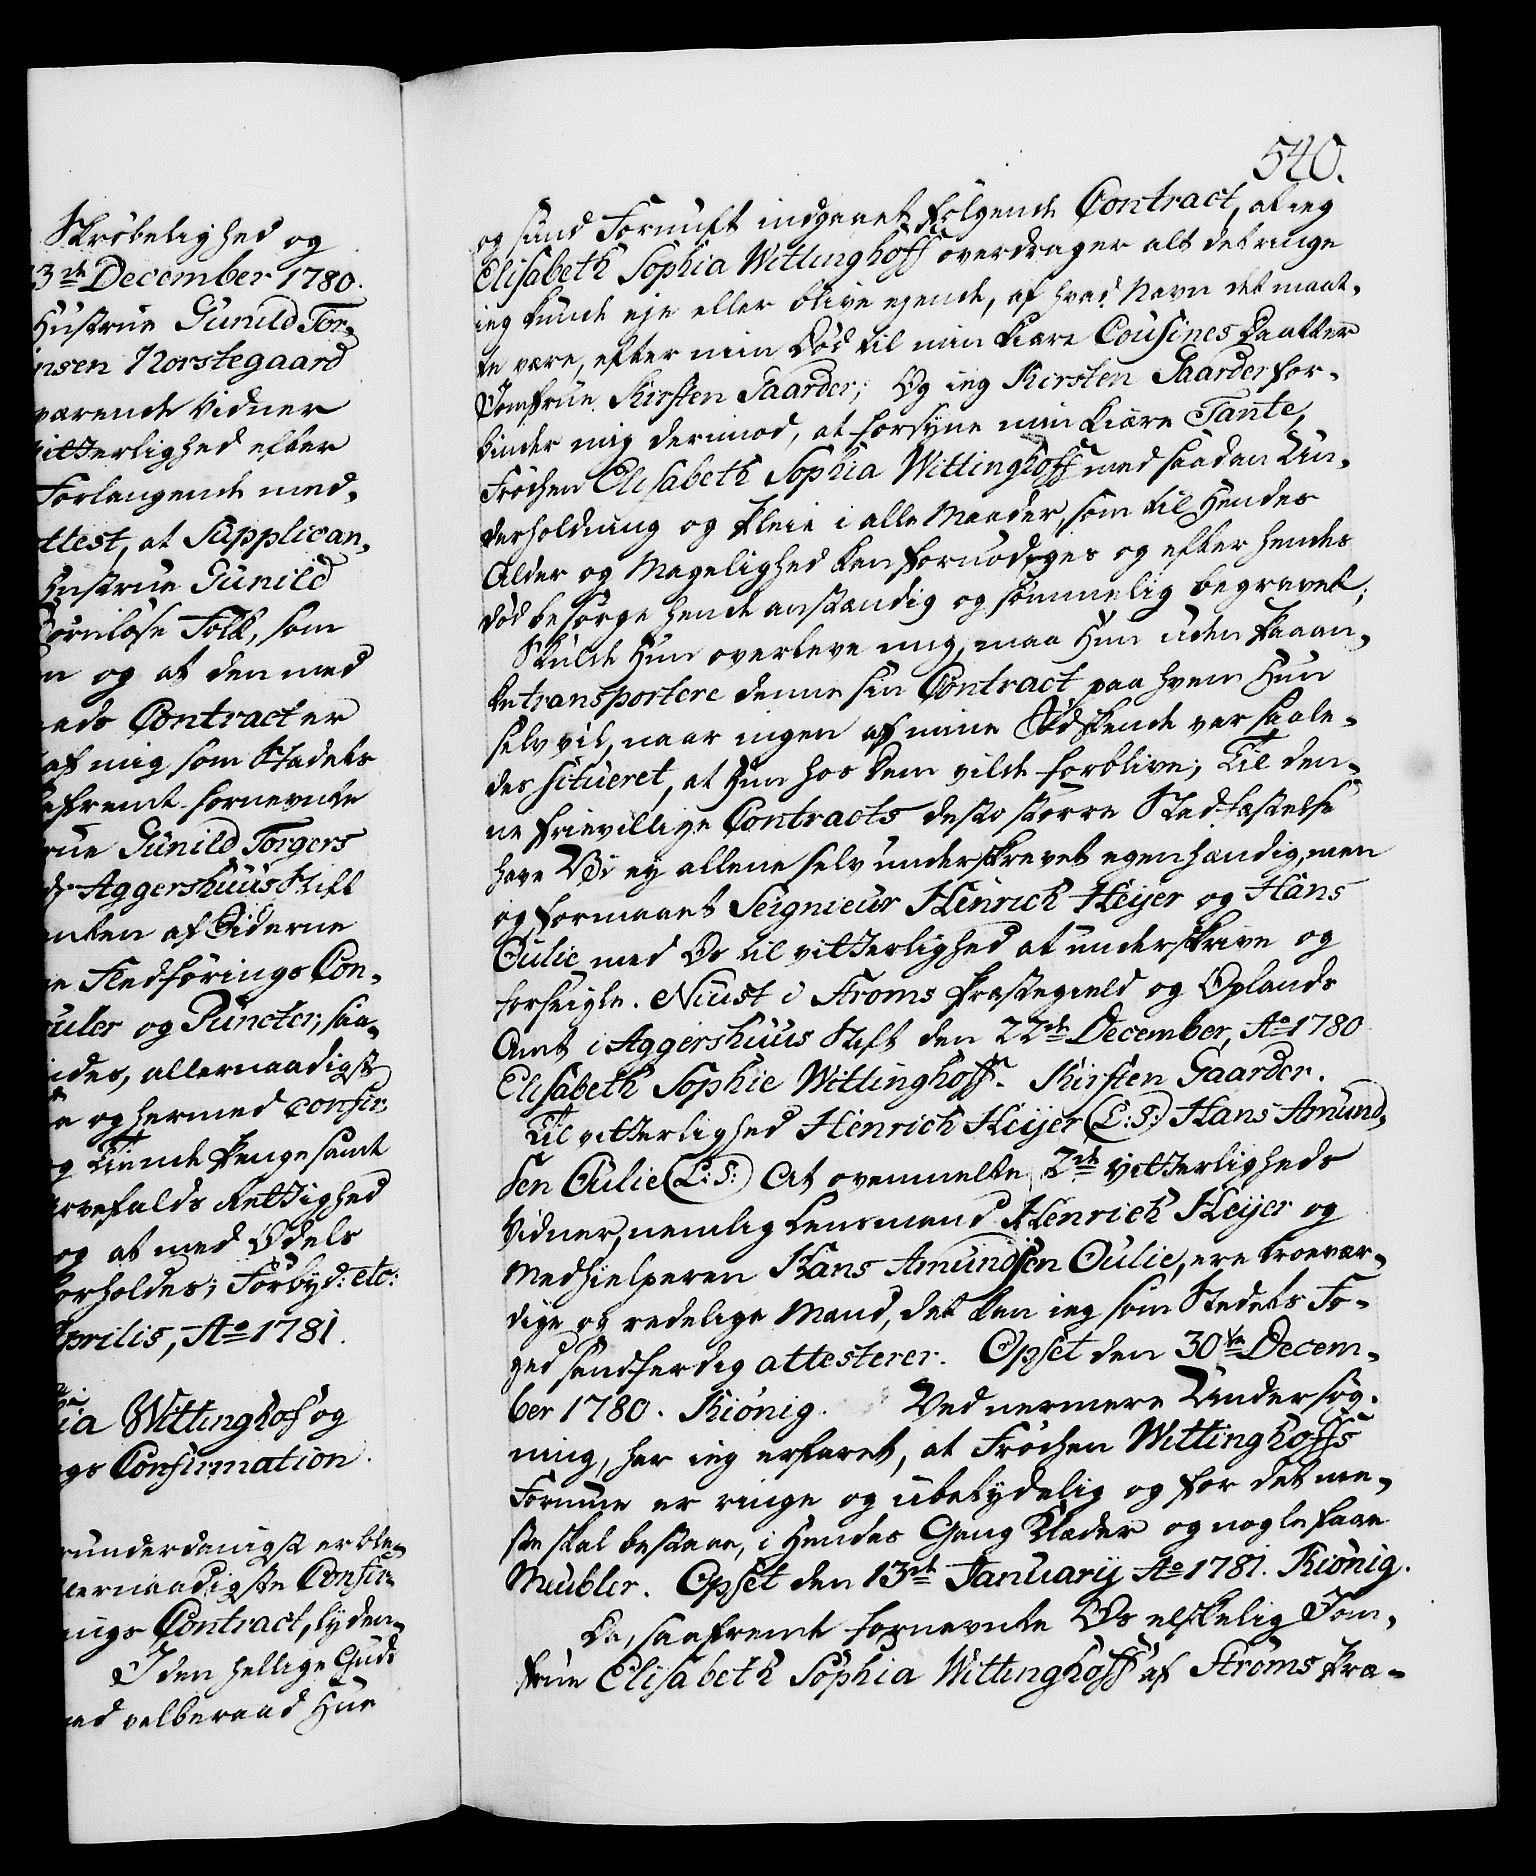 Skrøbelighed og
13de December 1780.
Hustrue Gunild Tor-
nsen Norstegaard
værende Vidner
vitterlighed efter
Forlangende med-
ttest, at Supplican-
Hustrue Gunild
Børnløse Folk, som
n og at den med
eds Contract er
af mig som Stædets
efremt fornevnte
rue Gunild Torgers
ds Aggershuus Stift
enten af Siderne
e Fledførings Con-
culer og Puncter, saa-
ides, allernaadigst
e og hermed confir-
g Tiende Penge samt
Arvefalds Rettighed
og at med Odels
forholdes; Forbyd: etc:
Aprilis, Ao 1781.
ia Wittinghof og
gs Confirmation.
runderdanigst er ble-
llernaadigste Confir-
ings Contract, lyden-
I den hellige Guds
ed velberaad Hue
540.
og sund Fornuft indgaaet følgende Contract, at ieg
Elisabeth Sophia Wittinghoff overdrager alt det ringe
ieg kunde eje eller blive ejende, af hvad Navn det maat-
te være, efter min Død til min kiære Cousines Daatter
Jomfrue Kirsten Gaarder; Og ieg Kirsten Gaarder for-
binder mig derimod, at forsyne min kiære Tante,
Frøchen Elisabeth Sophia Wittinghoff med saadan Un-
derholdning og Pleie i alle Maader, som til Hendes
Alder og Magelighed kan fornødiges og efter hendes
død besørge hende anstændig og sømmelig begravet;
Skulde Hun overleve mig, maa Hun uden Paaan-
ke transportere denne sin Contract paa hvem Hun
selv vil, naar ingen af mine Sødskende var saale-
des situeret, at Hun hos dem vilde forblive; Til den-
ne frievillige Contracts desto større Stadfæstelse
have Vi ej allene selv underskrevet egenhændig, men
og formaaet Seignieur Henrich Heijer og Hans
Oulie med Os til vitterlighed at underskrive og
forseigle. Niust i Stroms Præstegield og Oplands
Amt i Aggershuus Stift den 22de December, Ao 1780
Elisabeth Sophie Wittinghoff. Kirsten Gaarder.
Til vitterlighed Henrich Heijer (L:S:) Hans Amund-
sen Oulie (L:S:) At ovenmelte 2de Vitterligheds
Vidner, nemlig Lensmand Henrich Heijer og
Medhielperen Hans Amundsen Oulie, ere troevær-
dige og redelige Mænd, det kan ieg som Stedets Fo-
ged sandferdig attesterer. Opset den 30te Decem-
ber 1780. Kiønig. Ved nermere Undersøg-
ning, har ieg erfaret, at Frøchen Wittinghoffs
Formue er ringe og ubetydelig og for det me-
ste skal bestaae, i Hendes Gang Klæder og nogle faae
Meubler. Opset den 13de Januarij Ao 1781. Kiønig.
Da, saafremt fornevnte Os elskelig Jom-
frue Elisabeth Sophia Wittinghoff af Stroms Præ-